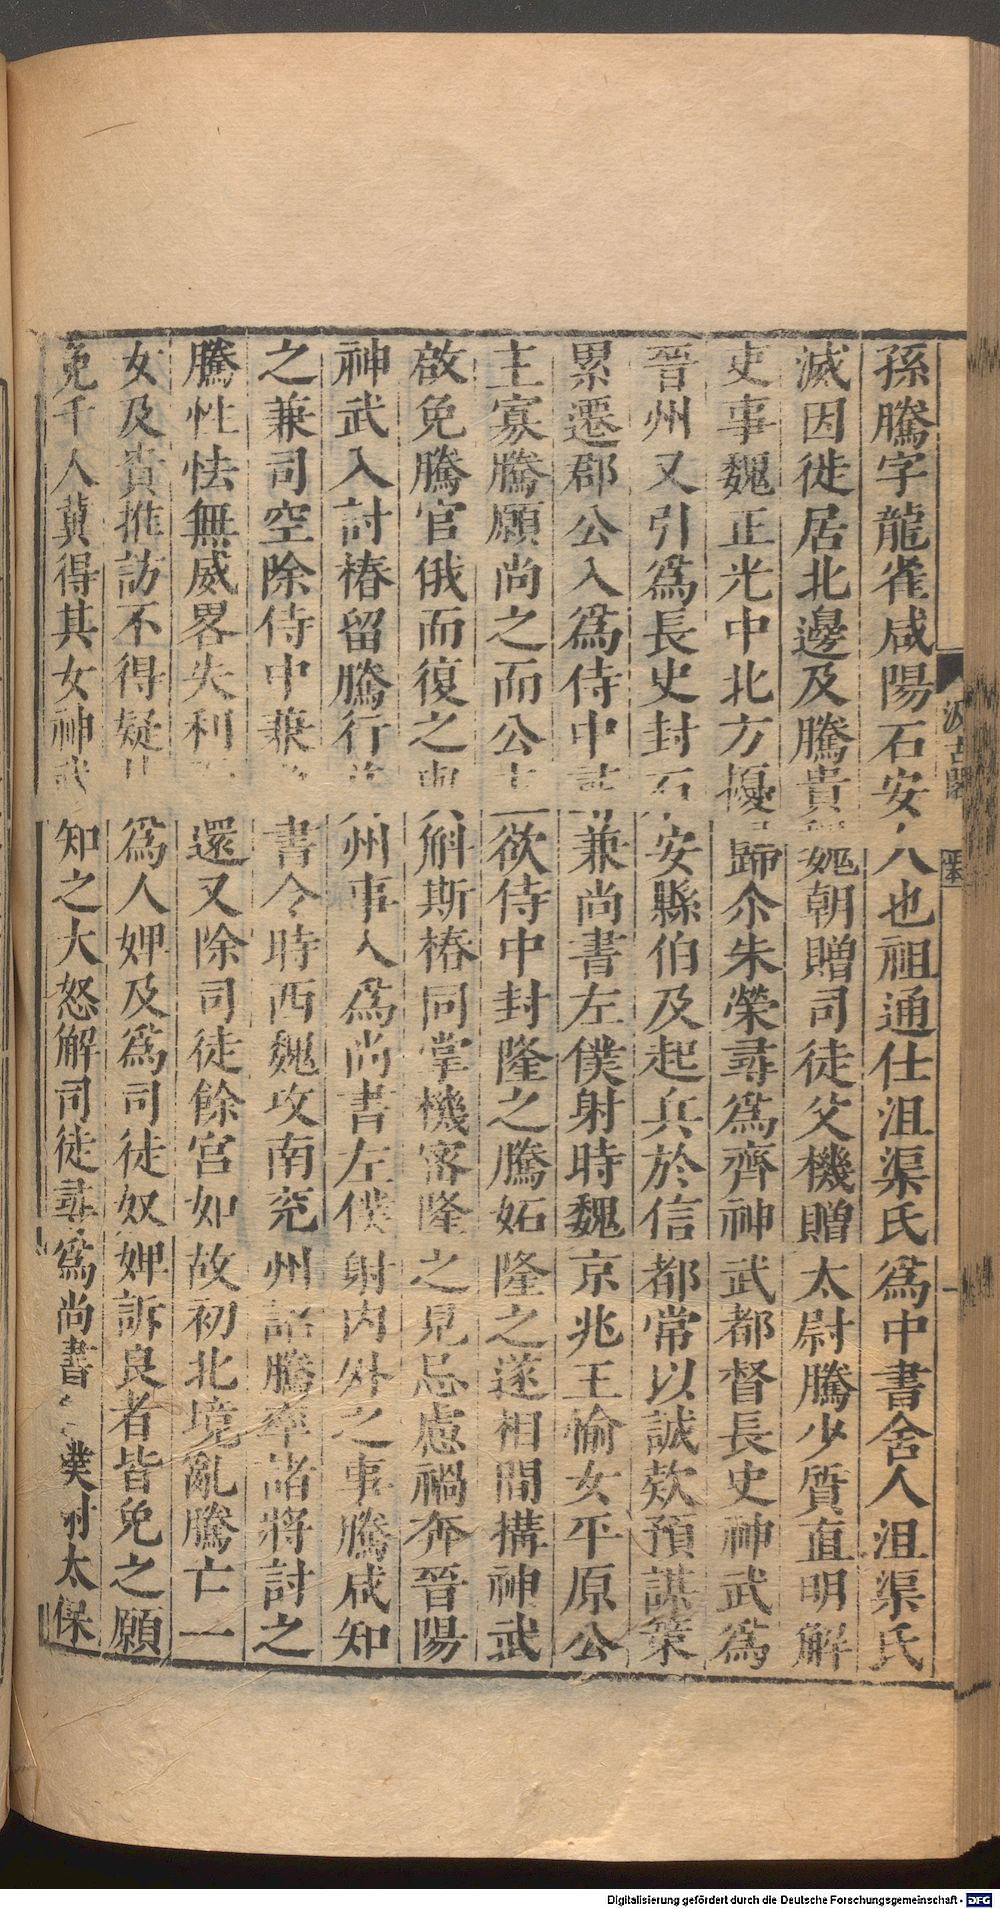 孫騰字龍雀咸陽石安人也祖通仕沮渠氏爲中書舍人沮渠氏
滅因徙居北邊及騰貴魏朝贈司徒父機贈太尉騰少質直明解
吏事魏正光中北方擾歸尒朱榮尋爲齊神武都督長史神武爲
晉州又引爲長史封石安縣伯及起兵於信都常以誠欵預謀策
累遷郡公入爲侍中兼尚書左僕射時魏京兆王愉女平原公
主寡騰願尚之而公主欲侍中封隆之騰妬隆之遂相間搆神武
啟免騰官俄而復之與斛斯椿同掌機密隆之見忌慮禍奔晉陽
神武入討椿留騰行并州事入爲尚書左僕射内外之事騰咸知
之兼司空除侍中兼尚書令時西魏攻南兖州詔騰率諸將討之
騰性怯無威畧失利還又除司徒餘官如故初北境亂騰亡一
女及貴推訪不得疑其爲人婢及爲司徒奴婢訴良者皆免之願
免千人冀得其女神武知之大怒解司徒尋爲尚書僕射太保
汲古閣
Digitalisierung gefördert durch die Deutsche Forschungsgemeinschaft - DFG